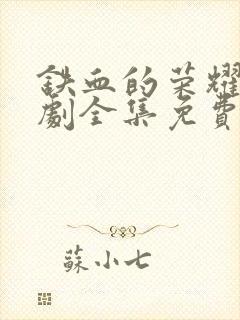 铁血的荣耀
劇全集免費
蘇小七